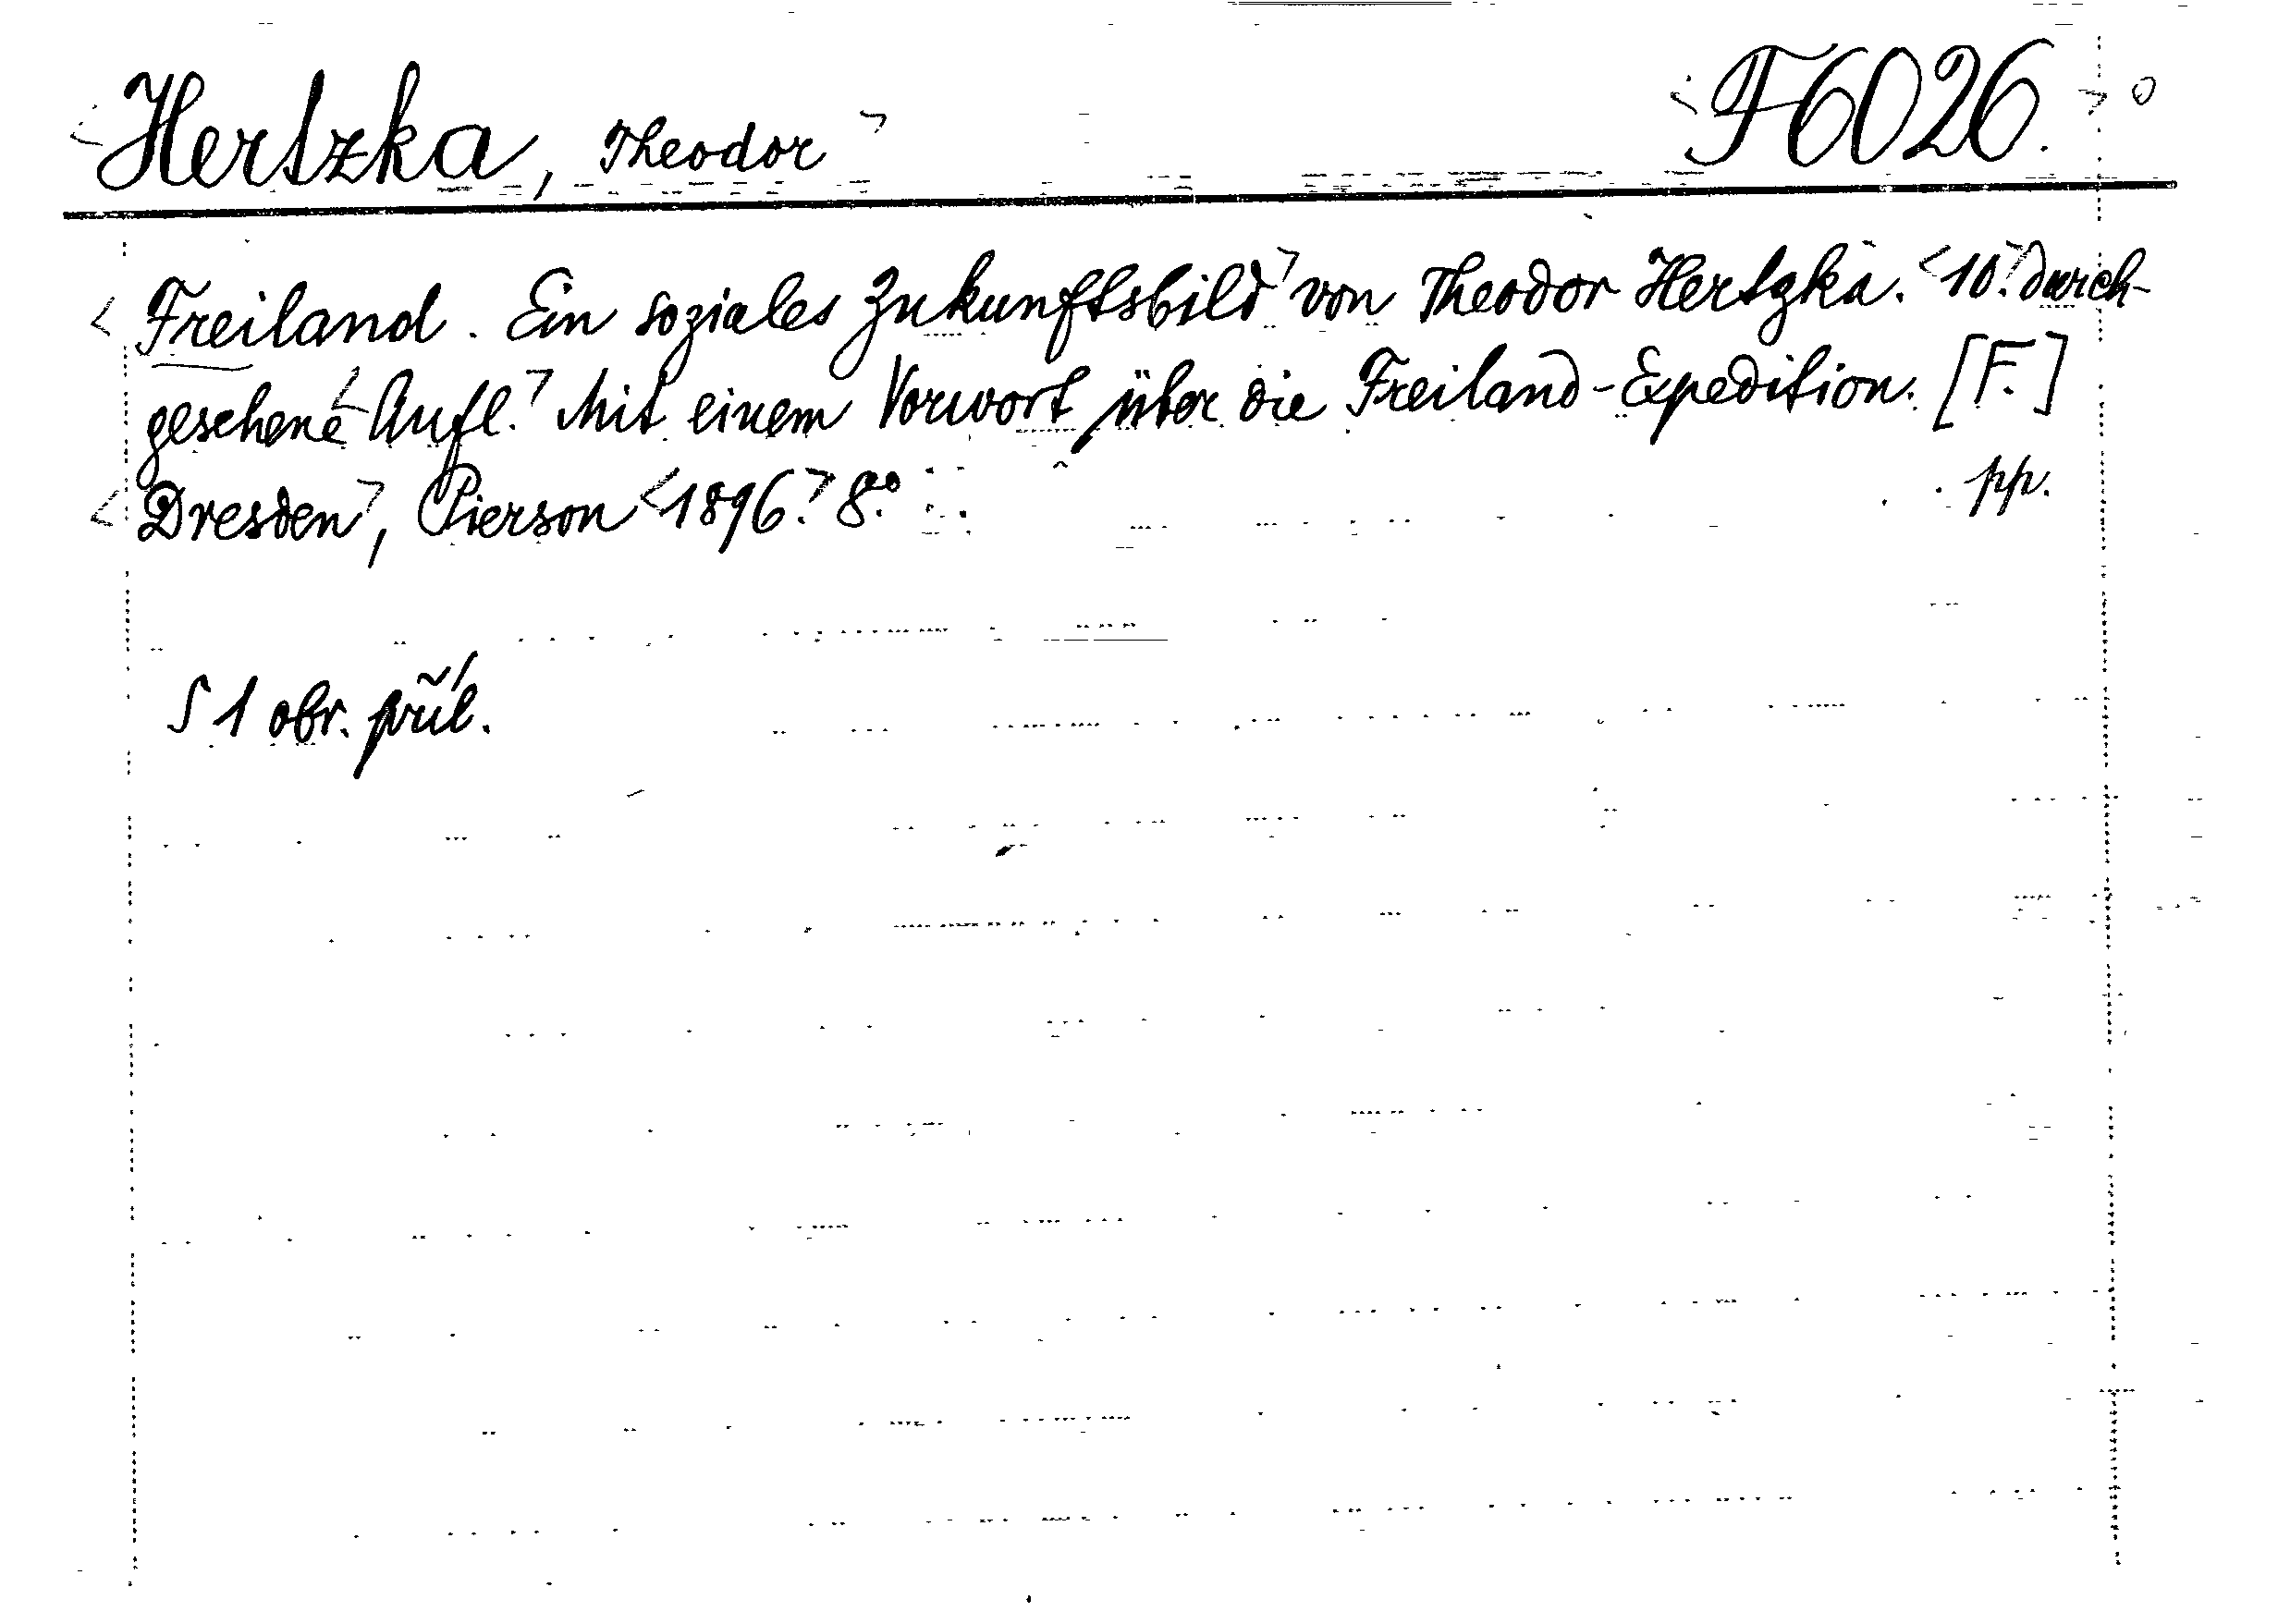 <Hertzka, Theodor> <F6026.>
<Freiland. Ein soziales Zukunftsbild> von Theodor Hertzka. <10.> durch-
gesehene <Aufl.> Mit einem Vorwort über die Freiland-Expedition. [F.]
<Dresden>, Pierson <1896.> 8.° pp.
S 1 obr. příl.